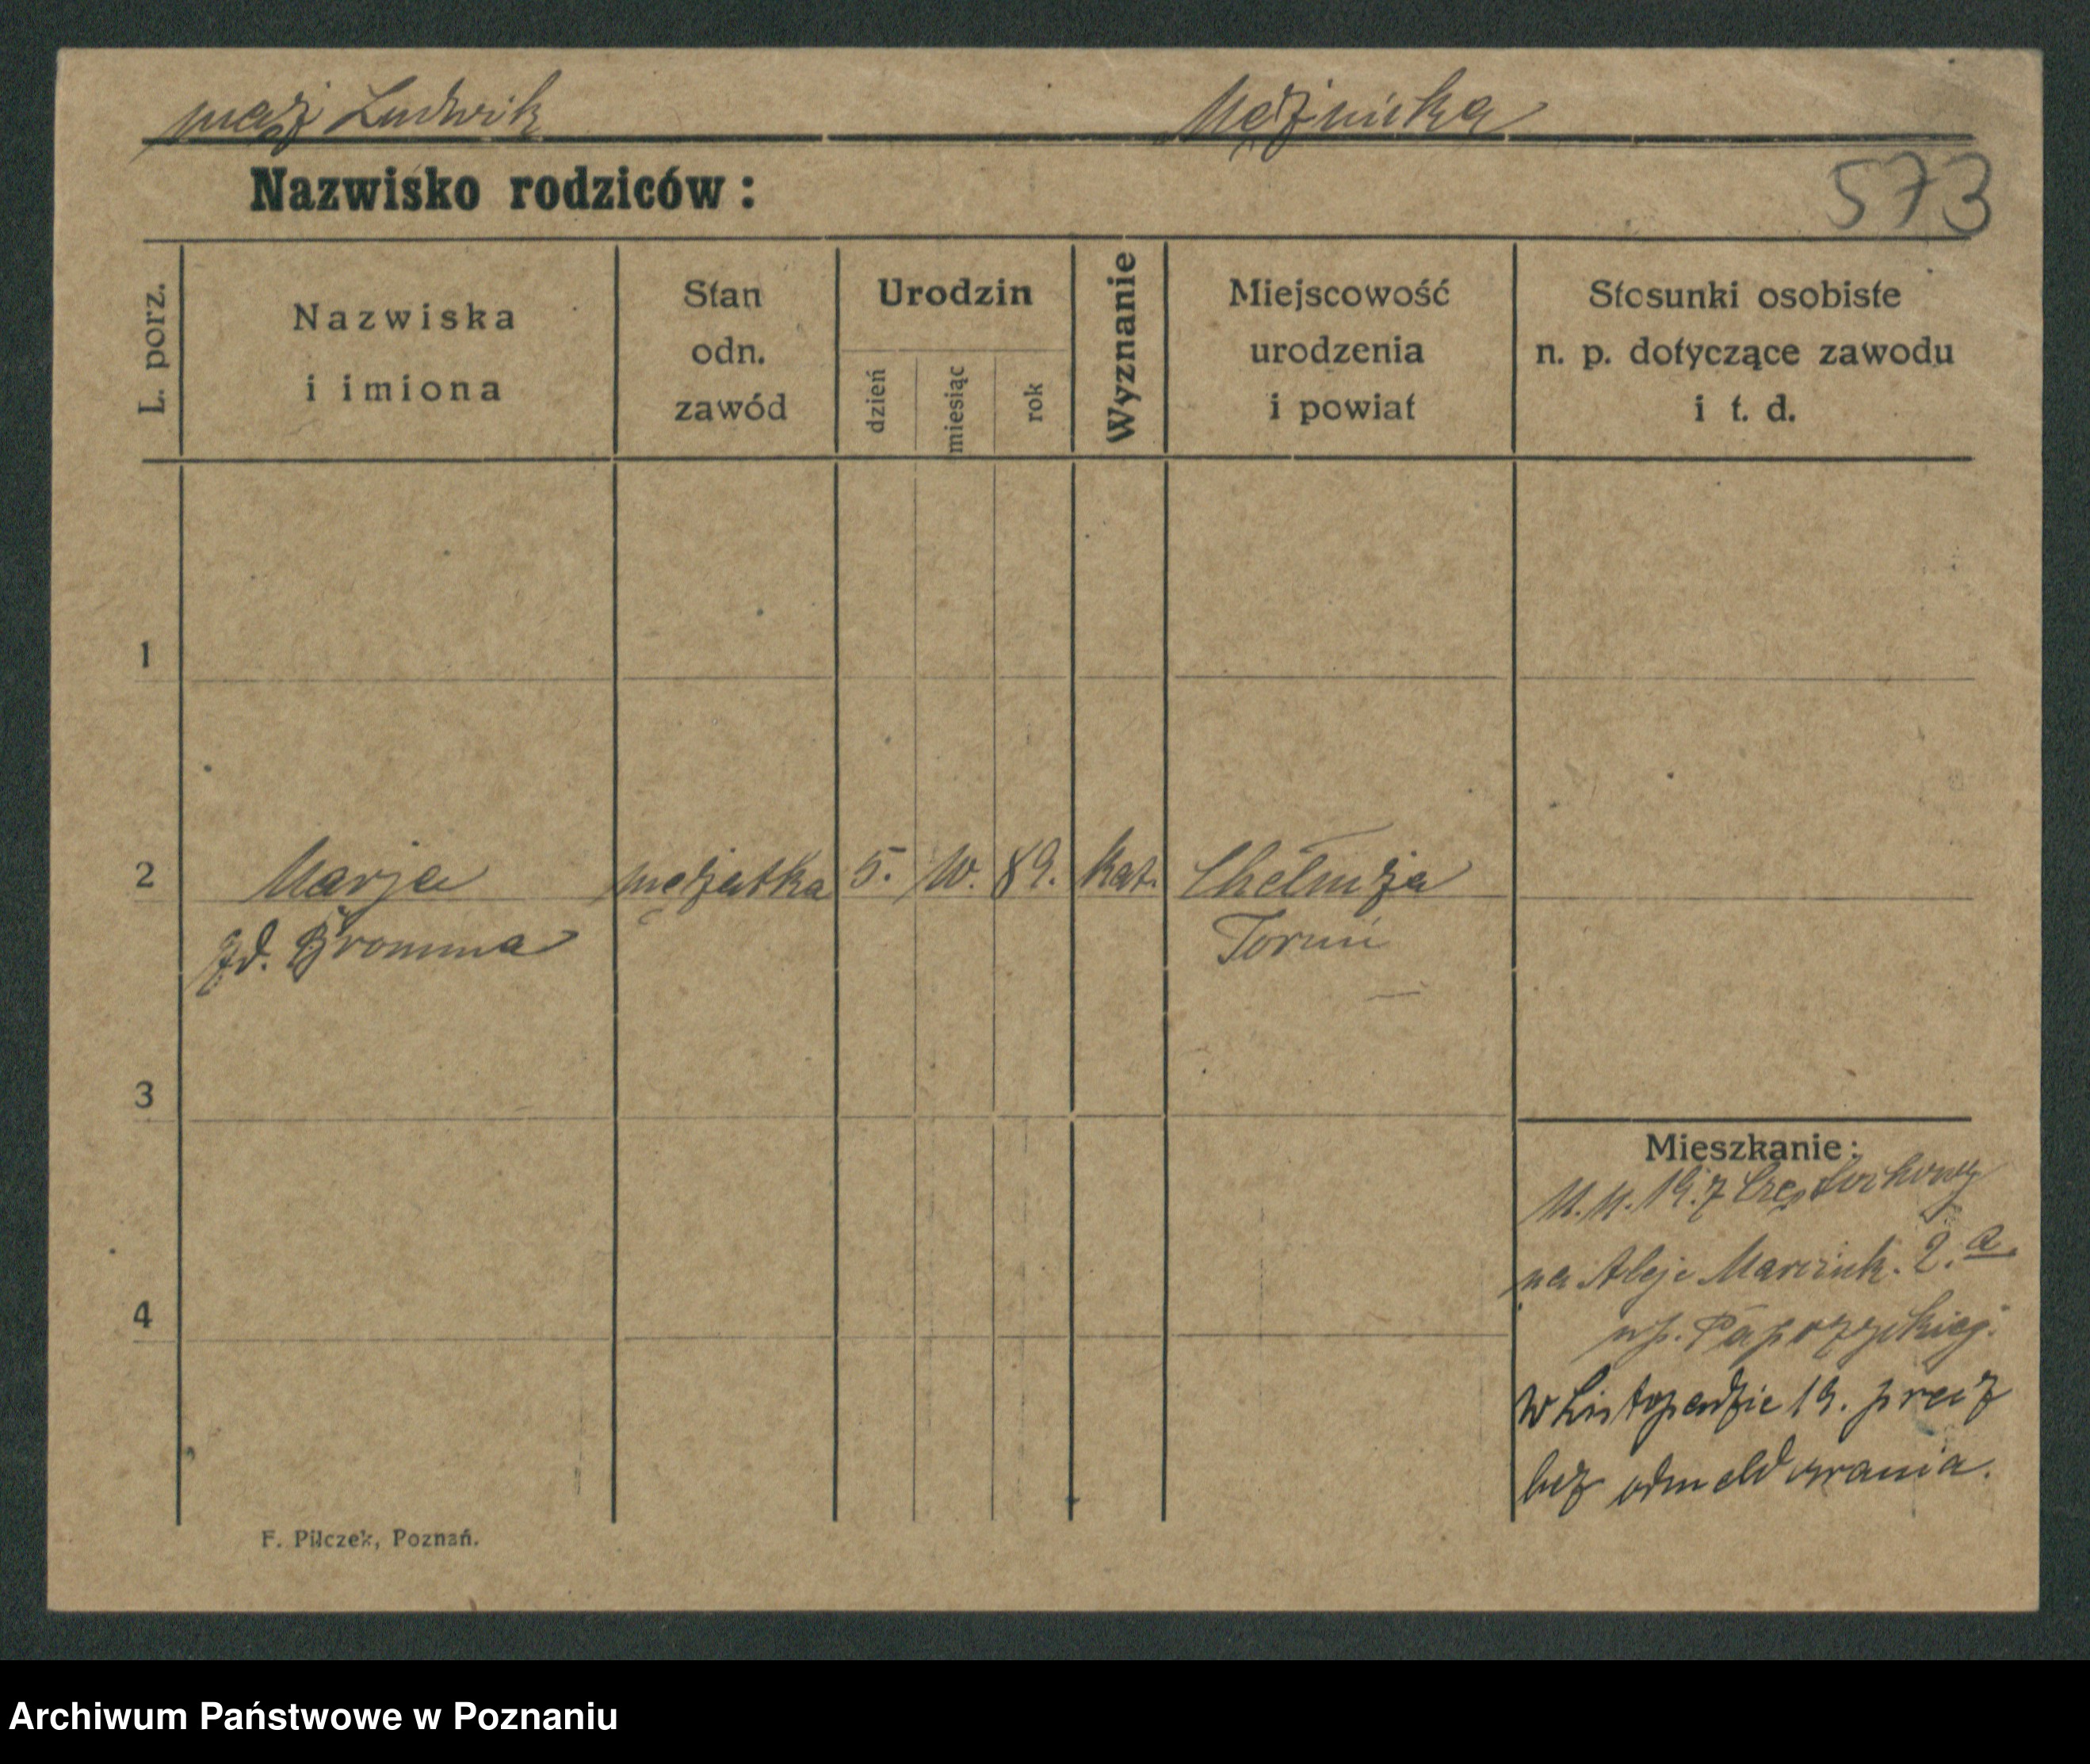 mąż Ludwik Mężnicka
573
Nazwisko rodziców:
L. porz.
Nazwiska
i imiona
Stan
odn.
zawód
Urodzin
dzień
miesiąc
rok
Wyznanie
Miejscowość
urodzenia
i powiat
Stosunki osobiste
n. p. dotyczące zawodu
i t. d.
1
2 Marja mężatka 5. 89. kat. Chełmża
zd. Bromma Toruń
3
4
Mieszkanie:
19. z Częstochowy
na Aleje Marcink. 2.a
w Listopadzie 19. precz
bez odmeldowania.
F. Pilczek, Poznań.
Archiwum Państwowe w Poznaniu